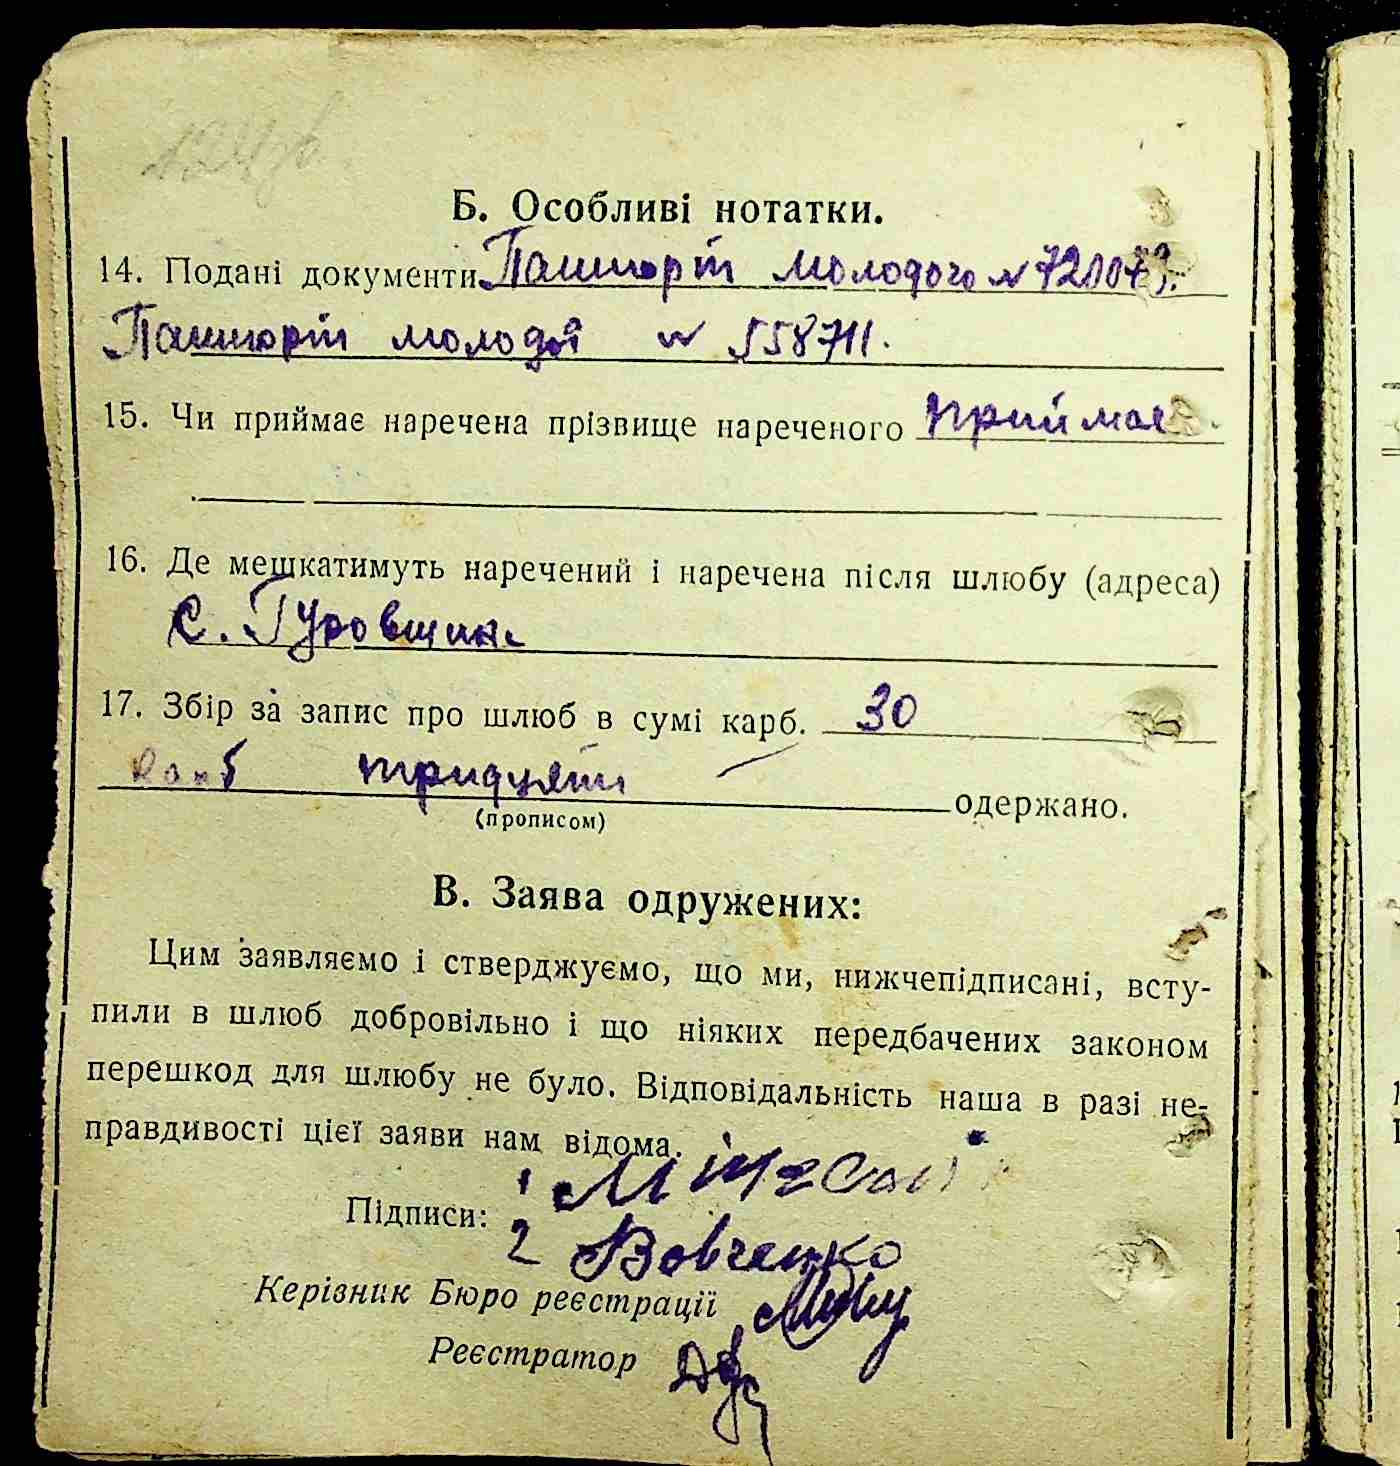 Б. Особливі нотатки.
14. Подані документи Пашпорт молодого № 720079.
Пашпорт молодой № 558711.
15. Чи приймає наречена прізвище нареченого приймає.
16. Де мешкатимуть наречений і наречена після шлюбу (адреса)
с. Гуровщина
17. Збір за запис про шлюб в сумі карб. 30
карб тридцяти
одержано.
(прописом)
В. Заява одружених:
Цим заявляємо і стверджуємо, що ми, нижчепідписані, всту-
пили в шлюб добровільно і що ніяких передбачених законом
перешкод для шлюбу не було. Відповідальність наша в разі не-
правдивості цієї заяви нам відома.
Підписи: 1
2 Вовченко
Керівник Бюро реєстрації
Реєстратор